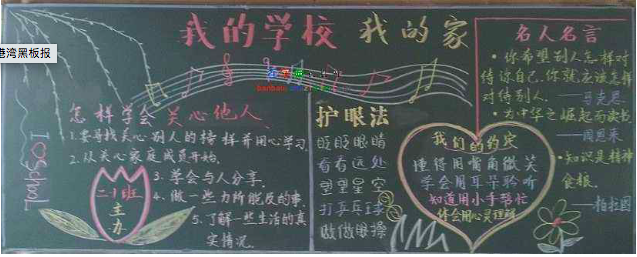 我的学校 我的家
港湾黑板报
I ♡ School
怎样学会关心他人
1.要寻找关心别人的榜样并用心学习.
2.从关心家庭成员开始.
3.学会与人分享.
4.做一些力所能及的事.
5.了解一些生活的真
实情况.
二1班
主办
护眼法
眨眨眼睛
看看远处
望望星空
打乒乓球
做做眼操
我们的约定
懂得用嘴角微笑
学会用耳朵聆听
知道用小手帮忙
体会用心灵理解
名人名言
·你希望别人怎样对
待你自己,你就应该怎样
对待别人.
——马克思
·为中华之崛起而读书
——周恩来
·知识是精神
食粮.
——柏拉图